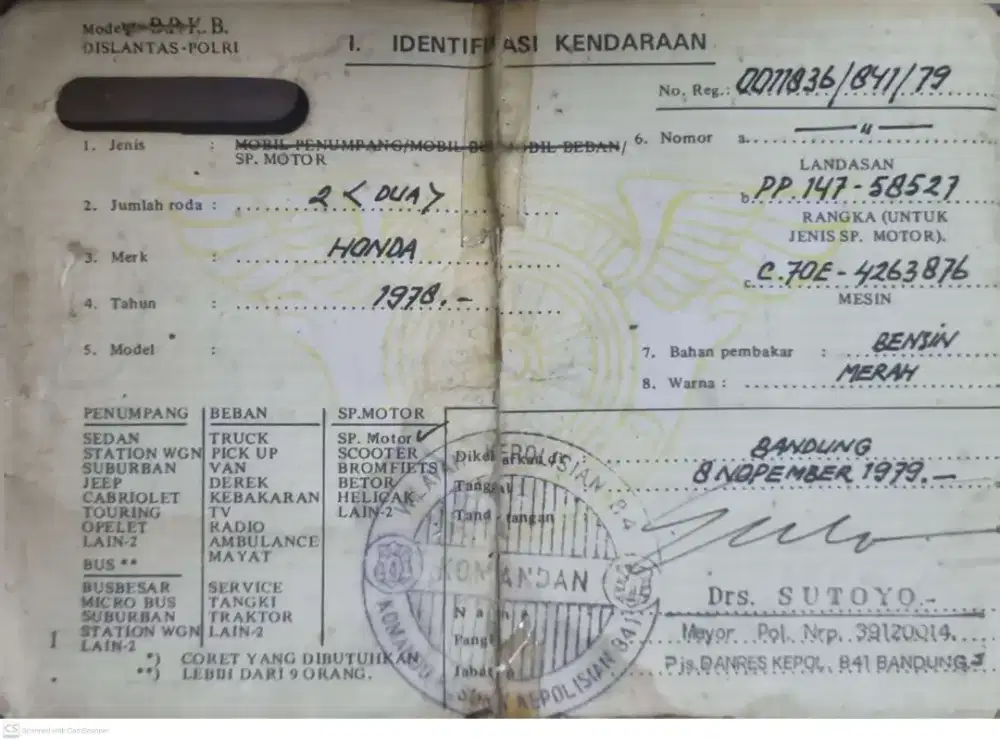 Model B.P.K.B.
DISLANTAS-POLRI
I. IDENTIFIKASI KENDARAAN
No. Reg.: 0011836/841/79
1. Jenis : MOBIL PENUMPANG/MOBIL BUS/MOBIL BEBAN/
SP. MOTOR
2. Jumlah roda : 2 < DUA >
3. Merk : HONDA
4. Tahun : 1978.-
5. Model :
6. Nomor a. — " —
LANDASAN
b. PP.147-58527
RANGKA (UNTUK
JENIS SP. MOTOR).
c. C.70E-4263876
MESIN
7. Bahan pembakar : BENSIN
8. Warna : MERAH
PENUMPANG
SEDAN
STATION WGN
SUBURBAN
JEEP
CABRIOLET
TOURING
OPELET
LAIN-2
BUS **
BUSBESAR
MICRO BUS
SUBURBAN
STATION WGN
LAIN-2
BEBAN
TRUCK
PICK UP
VAN
DEREK
KEBAKARAN
TV
RADIO
AMBULANCE
MAYAT
SERVICE
TANGKI
TRAKTOR
LAIN-2
SP.MOTOR
SP. Motor ✓
SCOOTER
BROMFIETS
BETOR
HELICAK
LAIN-2
1
*) CORET YANG DIBUTUHKAN
**) LEBIH DARI 9 ORANG.
Dikeluarkan di BANDUNG
Tanggal 8 NOPEMBER 1979.-
Tanda-tangan
Nama Drs. SUTOYO.-
Pangkat Mayor Pol. Nrp. 39120014.
Jabatan Pjs. DANRES KEPOL. 841 BANDUNG
WILAYAH KEPOLISIAN 84
KOMANDAN
KEPOLISIAN 841
CS Scanned with CamScanner